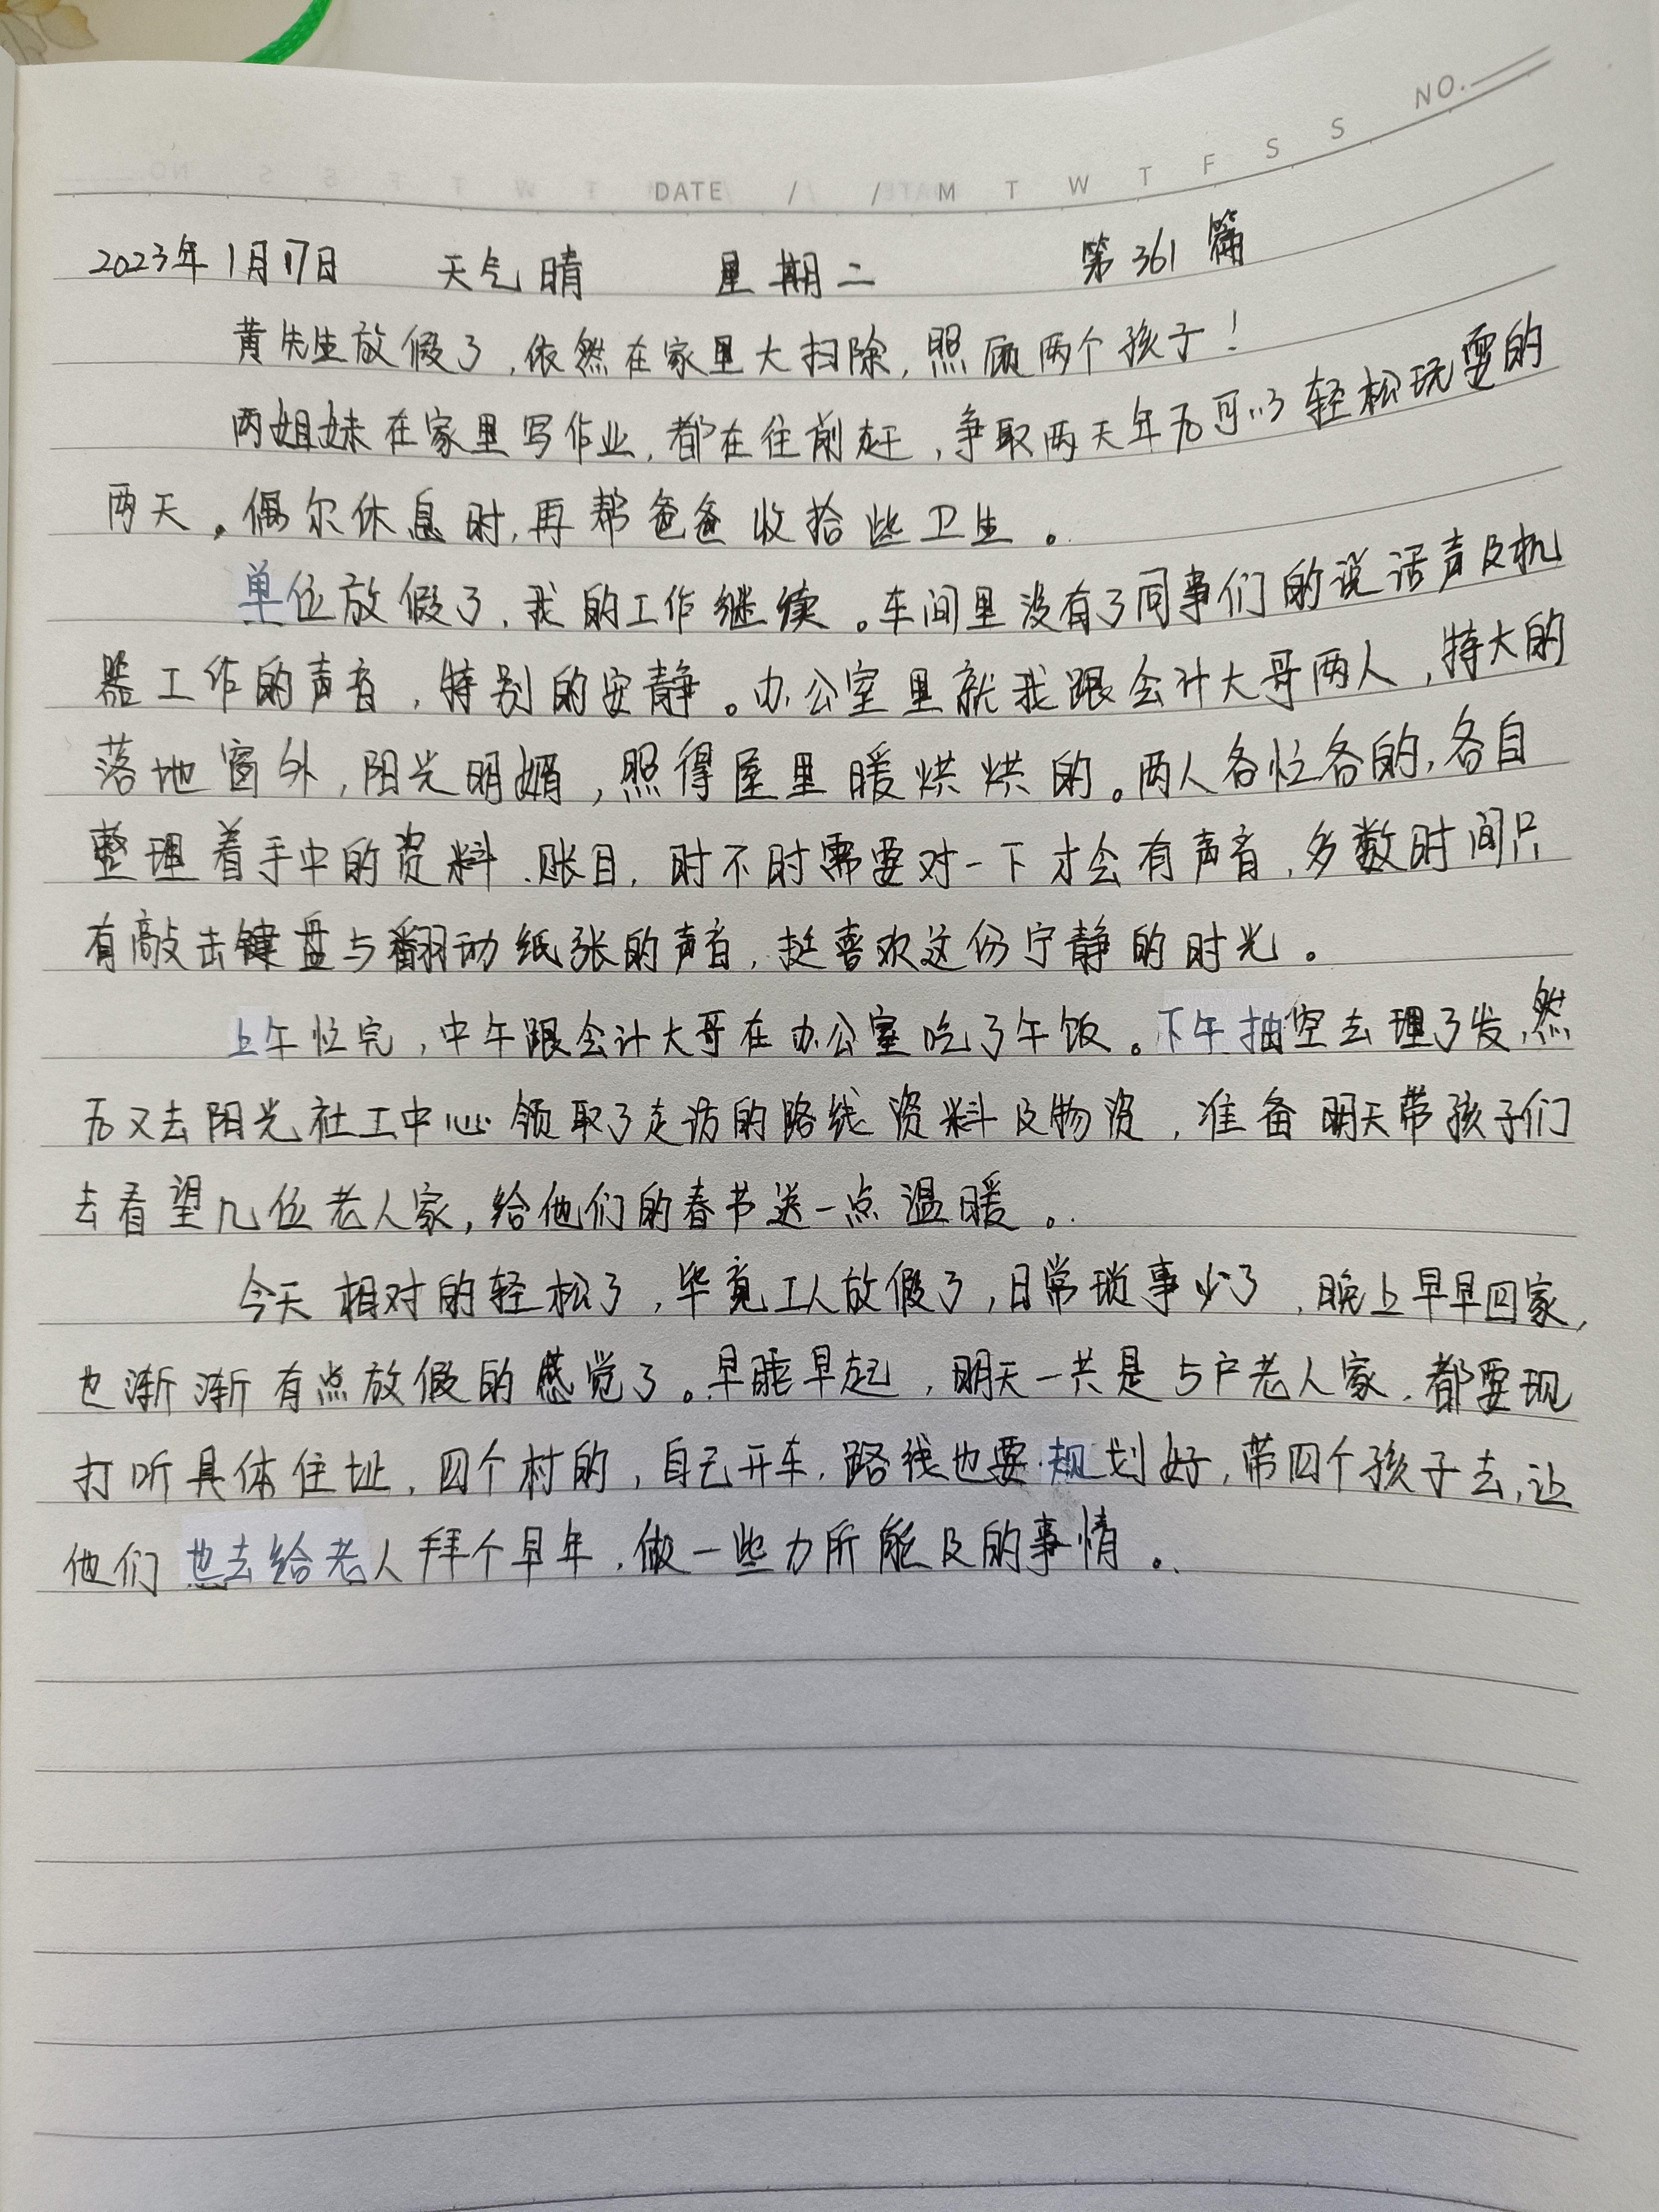 NO.
DATE / / M T W T F S S
2023年1月17日 天气晴 星期二 第361篇
黄先生放假了,依然在家里大扫除,照顾两个孩子!
两姐妹在家里写作业,都在往前赶,争取两天年后可以轻松玩耍的
两天。偶尔休息时,再帮爸爸收拾些卫生。
单位放假了,我的工作继续。车间里没有了同事们的说话声及机
器工作的声音,特别的安静。办公室里就我跟会计大哥两人,特大的
落地窗外,阳光明媚,照得屋里暖烘烘的。两人各忙各的,各自
整理着手中的资料、账目,时不时需要对一下才会有声音,多数时间只
有敲击键盘与翻动纸张的声音,挺喜欢这份宁静的时光。
上午忙完,中午跟会计大哥在办公室吃了午饭。下午抽空去理了发,然
后又去阳光社工中心领取了走访的路线资料及物资,准备明天带孩子们
去看望几位老人家,给他们的春节送一点温暖。
今天相对的轻松了,毕竟工人放假了,日常琐事少了,晚上早早回家,
也渐渐有点放假的感觉了。早睡早起,明天一共是5户老人家,都要现
打听具体住址,四个村的,自己开车,路线也要规划好,带四个孩子去,让
他们也去给老人拜个早年,做一些力所能及的事情。